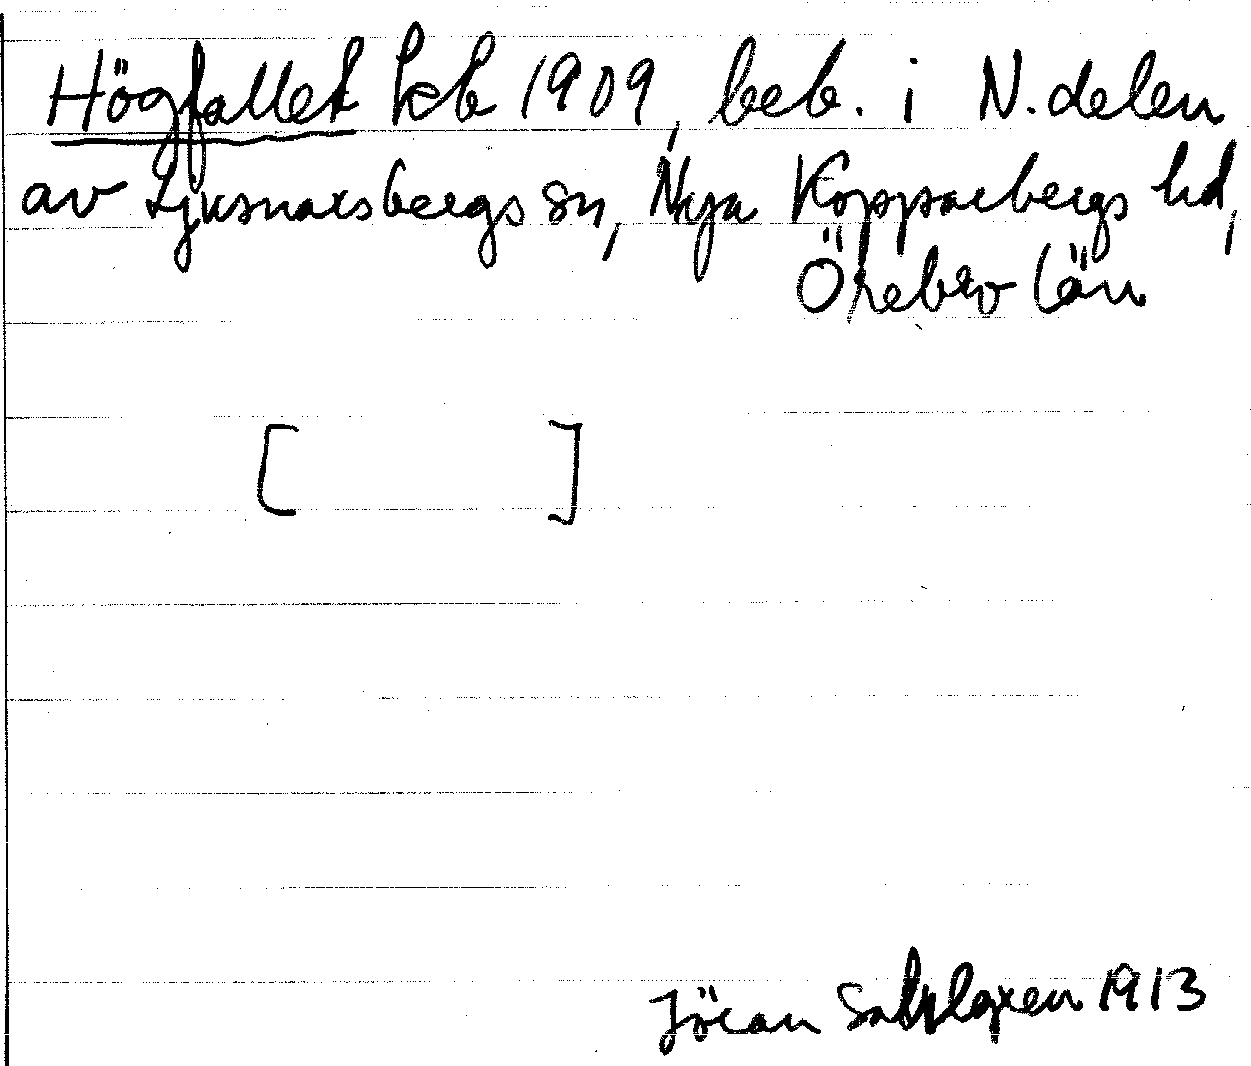 Högfallet kb 1909, beb. i N. delen
av Ljusnarsbergs sn, Nya Kopparbergs hd,
Örebro län
[ ]
Jöran Sahlgren 1913